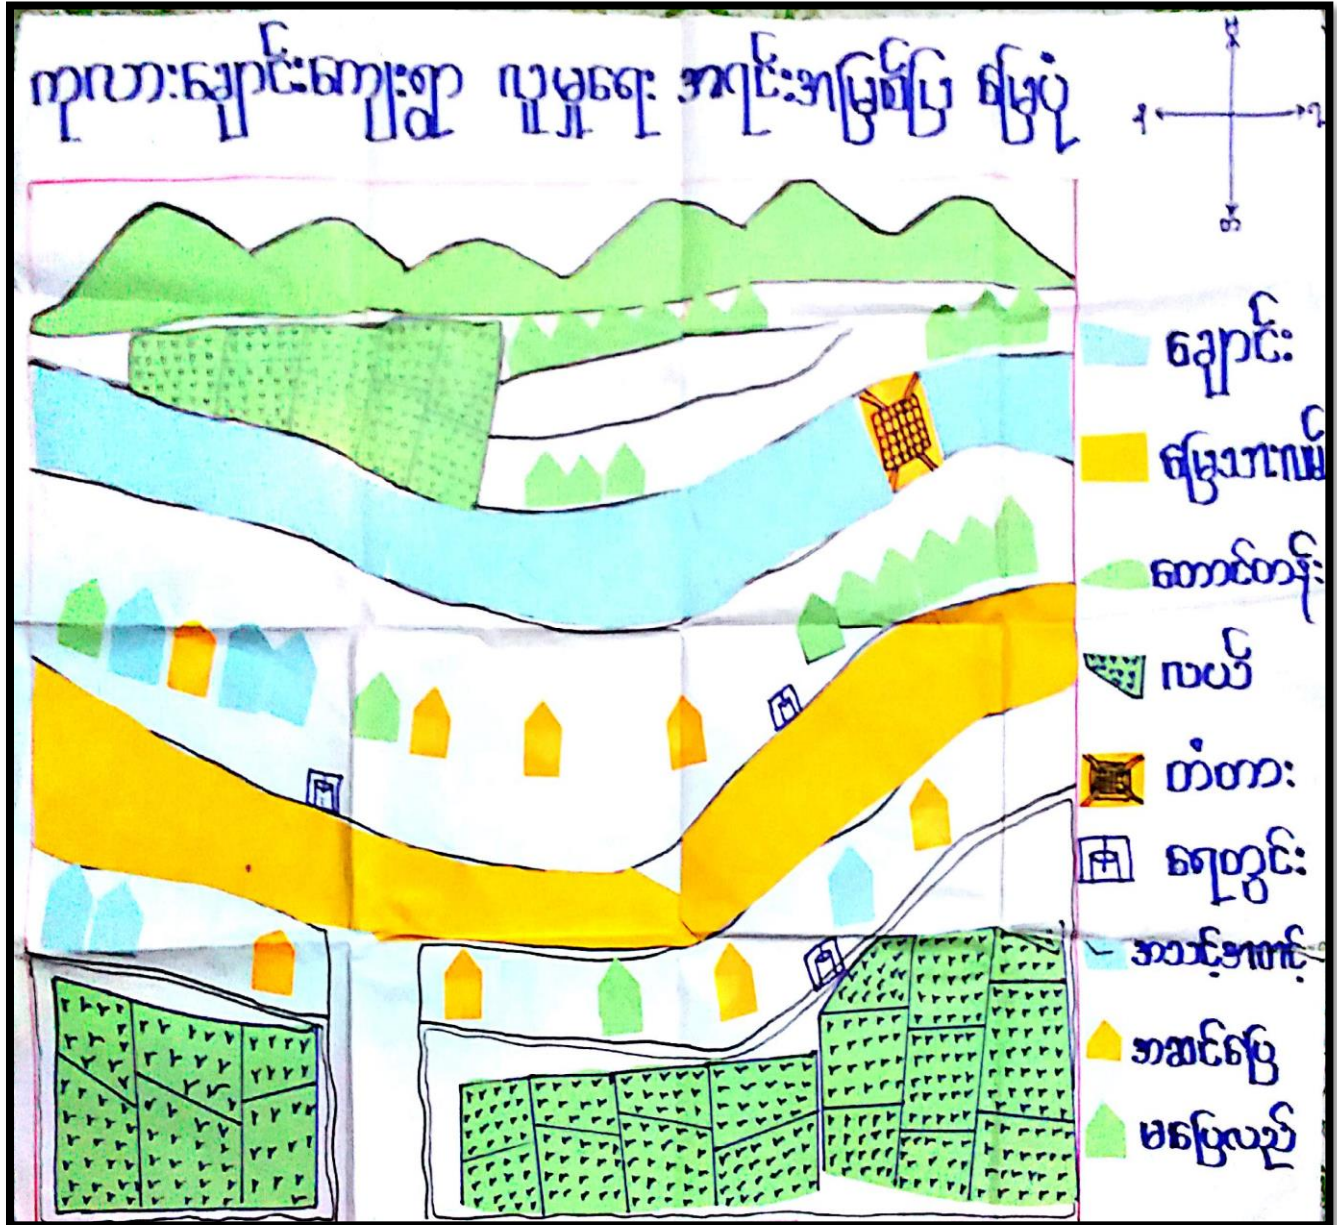 ကုလားချောင်းကျေးရွာ လူမှုရေး အရင်းအမြစ်ပြ မြေပုံ
ချောင်း
မြေသားလမ်း
တောင်တန်း
လယ်
တံတား
ရေတွင်း
အသင့်အတင့်
အဆင်ပြေ
မပြေလည်